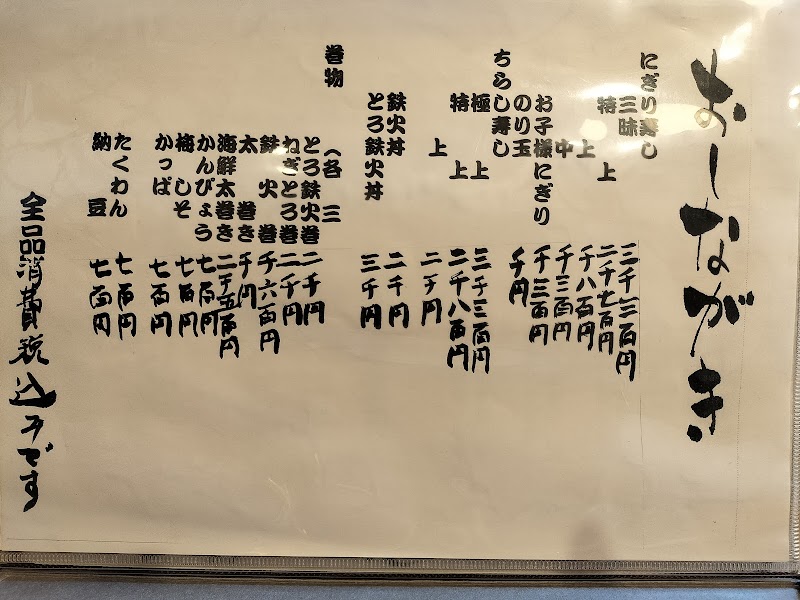 おしながき
にぎり寿し
三昧 三千三百円
特上 二千七百円
上 千八百円
中 千三百円
お子様にぎり 千三百円
のり玉 千円
ちらし寿し
極上 三千三百円
特上 二千八百円
上 二千円
鉄火丼 二千円
とろ鉄火丼 三千円
巻物
(各 三
とろ鉄火巻 二千円
ねぎとろ巻 二千円
鉄火巻 千六百円
太巻き 千円
海鮮太巻き 二千五百円
かんぴょう 七百円
梅しそ 七百円
かっぱ 七百円
たくわん 七百円
納豆 七百円
全品消費税込みです